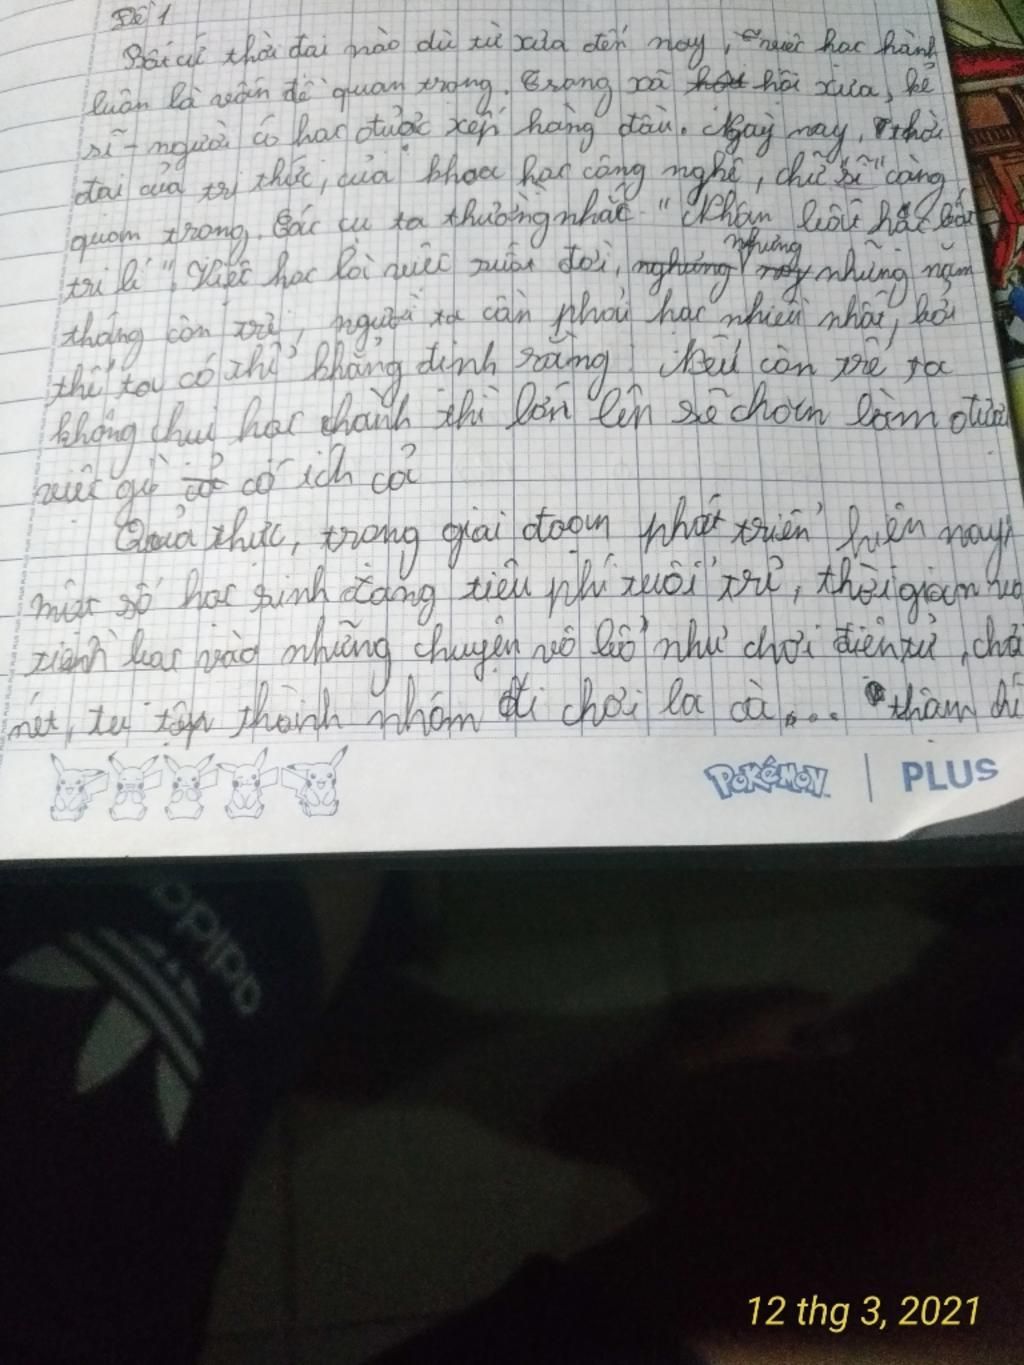 Đề 1
Bất cứ thời đại nào dù từ xưa đến nay, việc học hành
luôn là vấn đề quan trọng. Trong xã hội xưa, kẻ
sĩ - người có học được xếp hàng đầu. Ngày nay, thời
đại của tri thức, của khoa học công nghệ, chữ "sĩ" càng
quan trọng. Các cụ ta thường nhắc "Nhân bất học bất
tri lí". Việc học là việc suốt đời, nhưng những năm
tháng còn trẻ, người ta cần phải học nhiều nhất, bởi
thế ta có thể khẳng định rằng: Nếu còn trẻ ta
không chịu học hành thì lớn lên sẽ chẳng làm được
việc gì có ích cả
Quả thực, trong giai đoạn phát triển hiện nay,
một số học sinh đang tiêu phí tuổi trẻ, thời gian và
tiền bạc vào những chuyện vô bổ như chơi điện tử, chơi
nét, tụ tập thành nhóm đi chơi la cà,... thậm chí
POKéMON | PLUS
adidas
12 thg 3, 2021